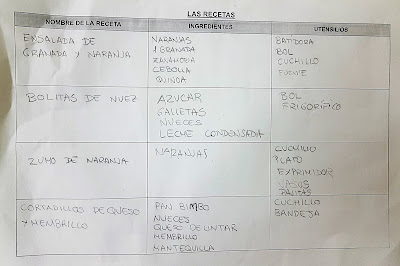 LAS RECETAS
NOMBRE DE LA RECETA INGREDIENTES UTENSILIOS
ENSALADA DE
GRANADA Y NARANJA
NARANJAS
1 GRANADA
ZANAHORIA
CEBOLLA
QUINOA
BATIDORA
BOL
CUCHILLO
FUENTE
BOLITAS DE NUEZ
AZUCAR
GALLETAS
NUECES
LECHE CONDENSADA
BOL
FRIGORÍFICO
ZUMO DE NARANJA
NARANJAS
CUCHILLO
PLATO
EXPRIMIDOR
VASOS
PAJITAS
CORTADILLOS DE QUESO
Y MEMBRILLO
PAN BIMBO
NUECES
QUESO DE UNTAR
MEMBRILLO
MANTEQUILLA
CUCHILLO
BANDEJA